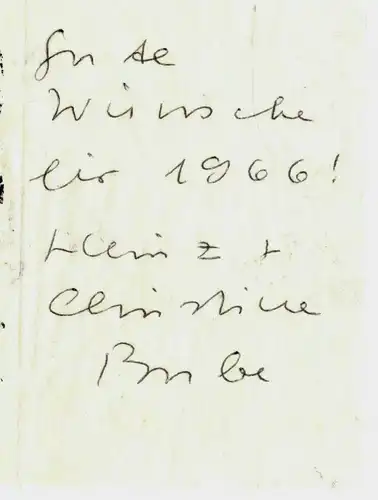 Gute
Wünsche
für 1966!
Heinz +
Christine